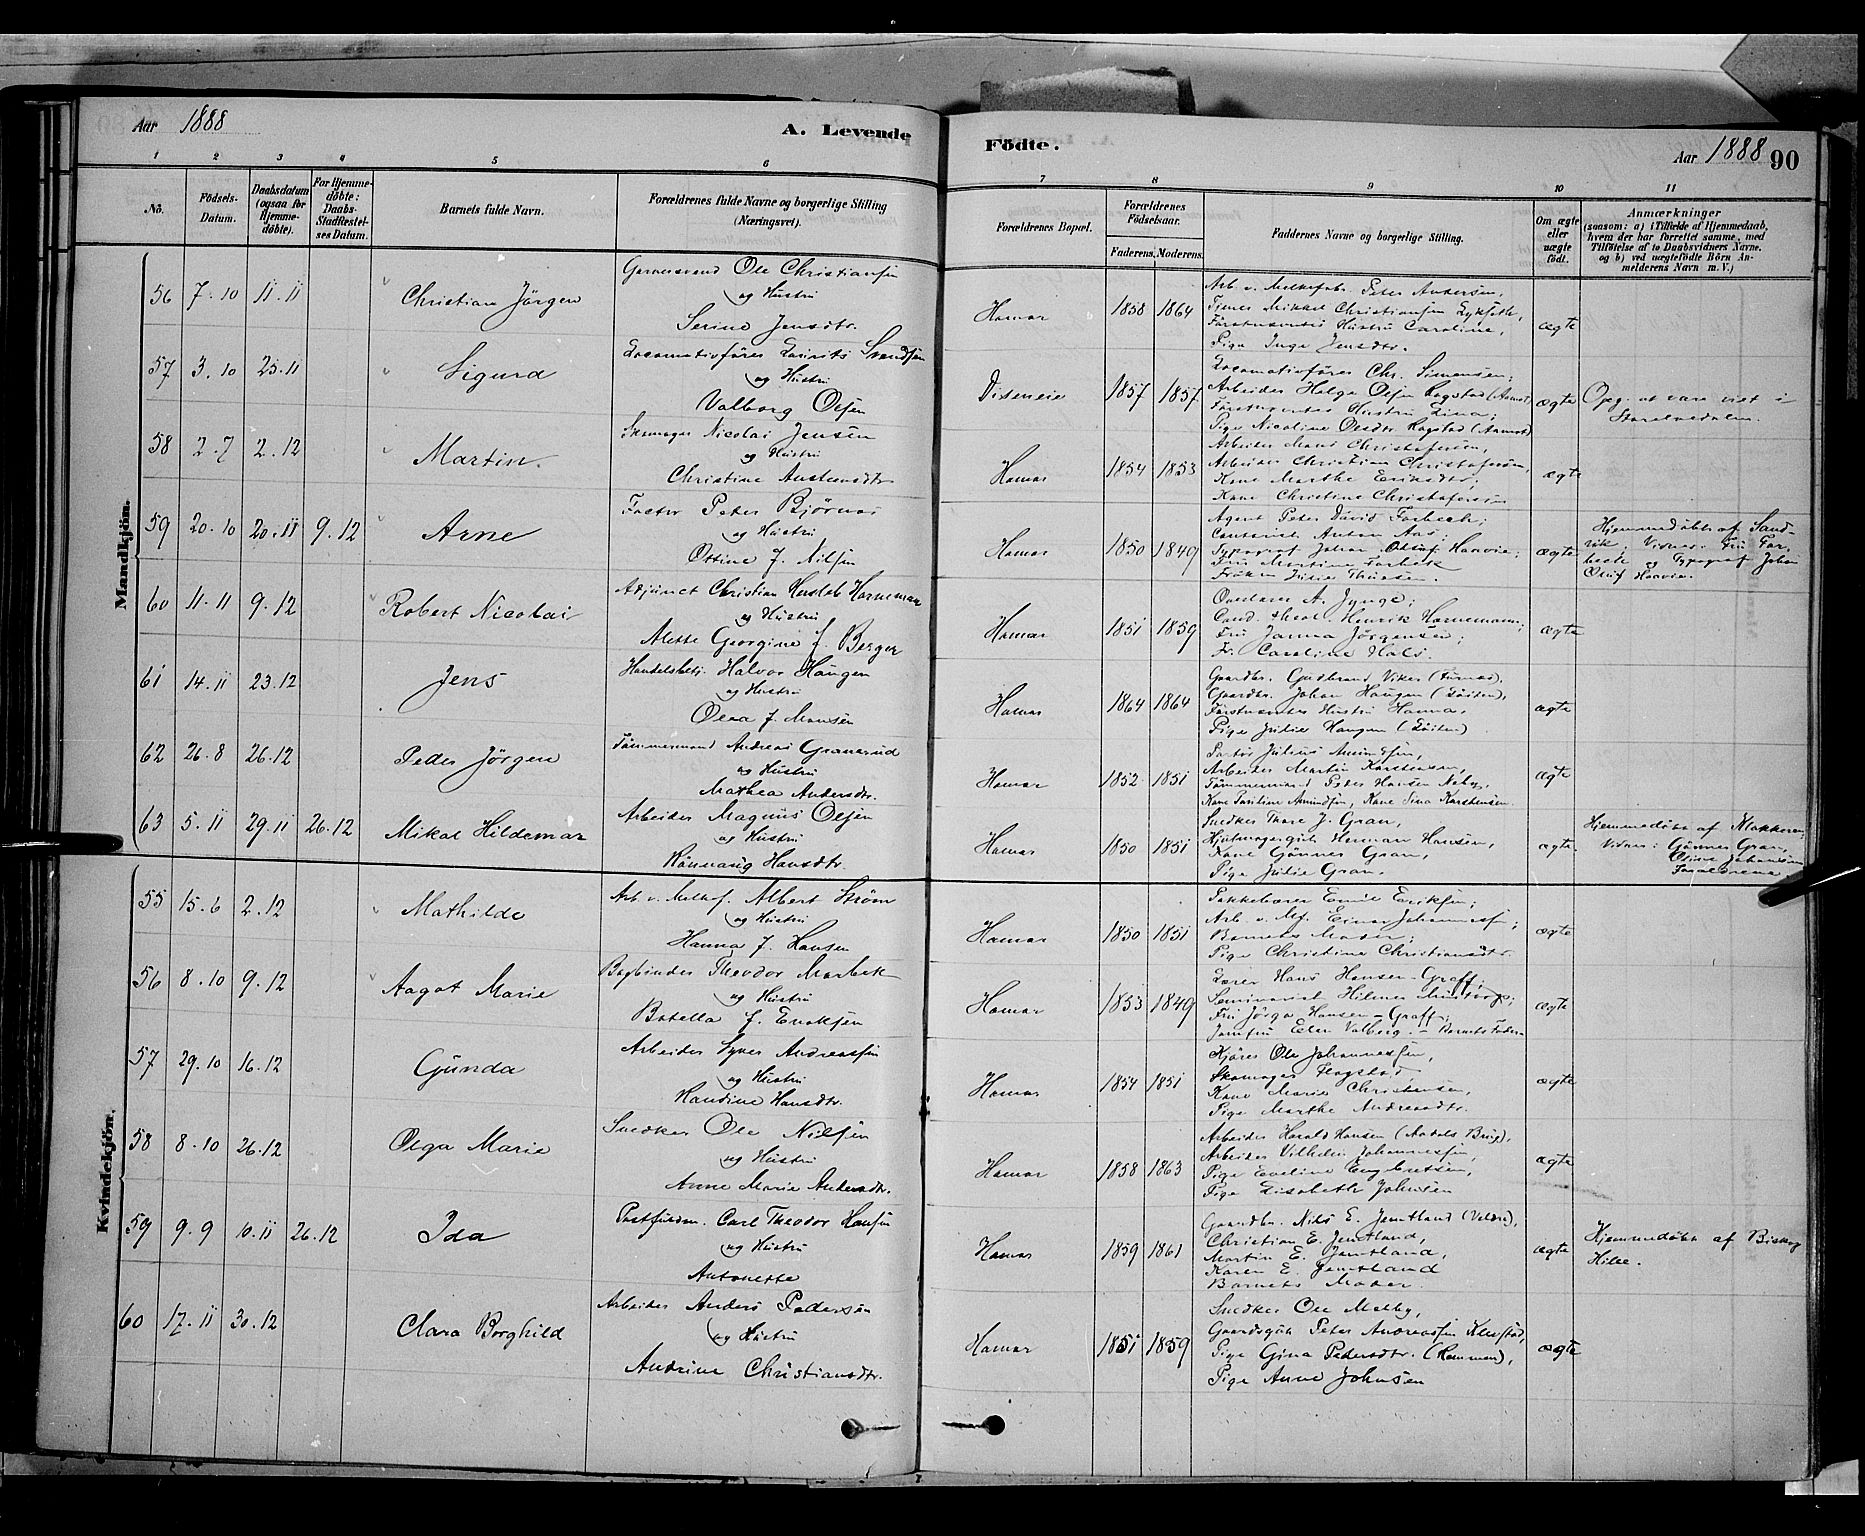 Aar 1888
A. Levende
Födte.
Aar 1888 90
1 2 3 4 5 6 7 8 9 10 11
No.
Födsels-Datum.
Daabsdatum (ogsaa for Hjemmedöbte).
For Hjemmedöbte: Daabs-Stadfæstelses Datum.
Barnets fulde Navn.
Forældrenes fulde Navne og borgerlige Stilling (Næringsvei).
Forældrenes Bopæl.
Forældrenes Födselsaar.
Faderens. Moderens.
Faddernes Navne og borgerlige Stilling.
Om ægte eller uægte födt.
Anmærkninger
(saasom: a) i Tilfælde af Hjemmedaab, hvem der har forrettet samme, med Tilföielse af to Daabsvidners Navne, og b) ved uægtefödte Börn Anmelderens Navn m. V.)
Mandkjön.
56 7.10 11.11 Christian Jörgen
Garversvend Ole Christiansen
og Hustru
Serine Jensdtr.
Hamar 1858 1864
Arb. v. Melkefabr. Peter Andersen,
Mikkel Christiansen
Förstnævntes Hustru Caroline,
Pige Inga Jensdtr.
ægte
57 3.10 25.11 Sigurd
Locomotivförer Laurits Svendsen
og Hustru
Valborg Olsen
Diseneie 1857 1857
Locomotivförer Chr. Simensen;
Arbeider Helge Olsen
Förstnævntes Hustru Lina;
Pige Nicoline
ægte
Opg. at være viet i
58 2.7 2.12 Martin.
Skomager Nicolai Jensen
og Hustru
Christine
Hamar 1854 1853
Arbeider Mons Christofersen,
Arbeider Christian Christofersen,
Kone Marthe Eriksdtr,
Kone Christine Christofersen
ægte
59 20.10 20.11 9.12 Arne
Factor Peter Björnar
og Hustru
Ottine f. Nilsen
Hamar 1850 1849
Agent Peter David Forbech;
Contorist Anton Aas;
Typograf Johan Oluf Haavie;
Fru Martine Forbech
Fröken Julie Thursen.
ægte
Hjemmedöbt af Sandvik; Vidner: Fru Forbech og Typograf Johan Oluf Haavie.
60 11.11 9.12 Robert Nicolai
Adjunct Christian Hersleb Horneman
og Hustru
Alette Georgine f. Berger
Hamar 1851 1859
Overlærer A. Jynge;
Cand. theol. Henrik Hornemann;
Fru Janna Jörgensen;
Fr. Caroline Hals.
ægte
61 14.11 23.12 Jens
Handelsbetj. Halvor Haugen
og Hustru
Olea f. Monsen
Hamar 1864 1864
Gaardbr. Gudbrand Viker (Furnæs).
Gaardbr. Johan Haugen (Löiten).
Förstnævntes Hustru Hanna.
Pige Julie Haugen (Löiten)
ægte
62 26.8 26.12 Peder Jörgen
Tömmermand Andreas Granerud
og Hustru
Mathea Andersdtr.
Hamar 1852 1851
Julius Amundsen,
Arbeider Martin Karstensen,
Tömmermand Peter Hansen Næby,
Kone Pauline Amundsen, Kone Tina Karstensen
ægte
63 5.11 29.11 26.12 Mikal Hildemar
Arbeider Magnus Olsen
og Hustru
Rönnaug Hansdtr.
Hamar 1850 1851
Snedker Thore J. Gran,
Hjulmagergut Herman Hansen,
Kone Gönner Gran,
Pige Julie Gran.
ægte
Hjemmedöbt af
Vidner: Gönner Gran,
Oline Johansen
Forældrene
Kvindekjön.
55 15.6 2.12 Mathilde
Arb. v. Melkf. Albert Ström
og Hustru
Hanna f. Hansen
Hamar 1850 1851
Pakkebærer Emil Eriksen;
Arb. v. Mf. Einar Johannessen;
Barnets Moder;
Pige Christine Christiansdtr
ægte
56 8.10 9.12 Aagot Marie
Bogbinder Theodor Morbek
og Hustru
Botella f. Eriksen
Hamar 1853 1849
Lærer Hans Hansen-Graff;
Seminarist Hilmer
Fru Jörga Hansen-Graff;
Jomfru Elen Valborg. - Barnets Fader
ægte
57 29.10 16.12 Gunda
Arbeider Syver Andreassen
og Hustru
Randine Hansdtr.
Hamar 1854 1851
Kjörer Ole Johannessen,
Skomager Flagstad,
Kone Marie Christensen,
Pige Marthe Andreasdtr.
ægte
58 8.10 26.12 Olga Marie
Snedker Ole Nilsen
og Hustru
Anne Marie Andersdtr.
Hamar 1858 1863
Arbeider Harald Hansen (Aadals Brug).
Arbeider Vilhelm Johannessen,
Pige Eveline Engebretsen,
Pige Lisabeth Johnsen
ægte
59 9.9 10.11 26.12 Ida
Postfuldm. Carl Theodor Hansen
og Hustru
Antonette
Hamar 1859 1861
Gaardbr. Nils E. Jemtland (Veldre),
Christian E. Jemtland,
Martin E. Jemtland,
Karen E. Jemtland
Barnets Moder.
ægte
Hjemmedöbt af Biskop Hille.
60 17.11 30.12 Clara Borghild
Arbeider Anders Pedersen
og Hustru
Andrine Christiansdtr.
Hamar 1851 1859
Snedker Ole Melby,
Gaardsgut Peter Andreassen
Pige Gina Pedersdtr. (Rommen),
Pige Anne Johnsen
ægte